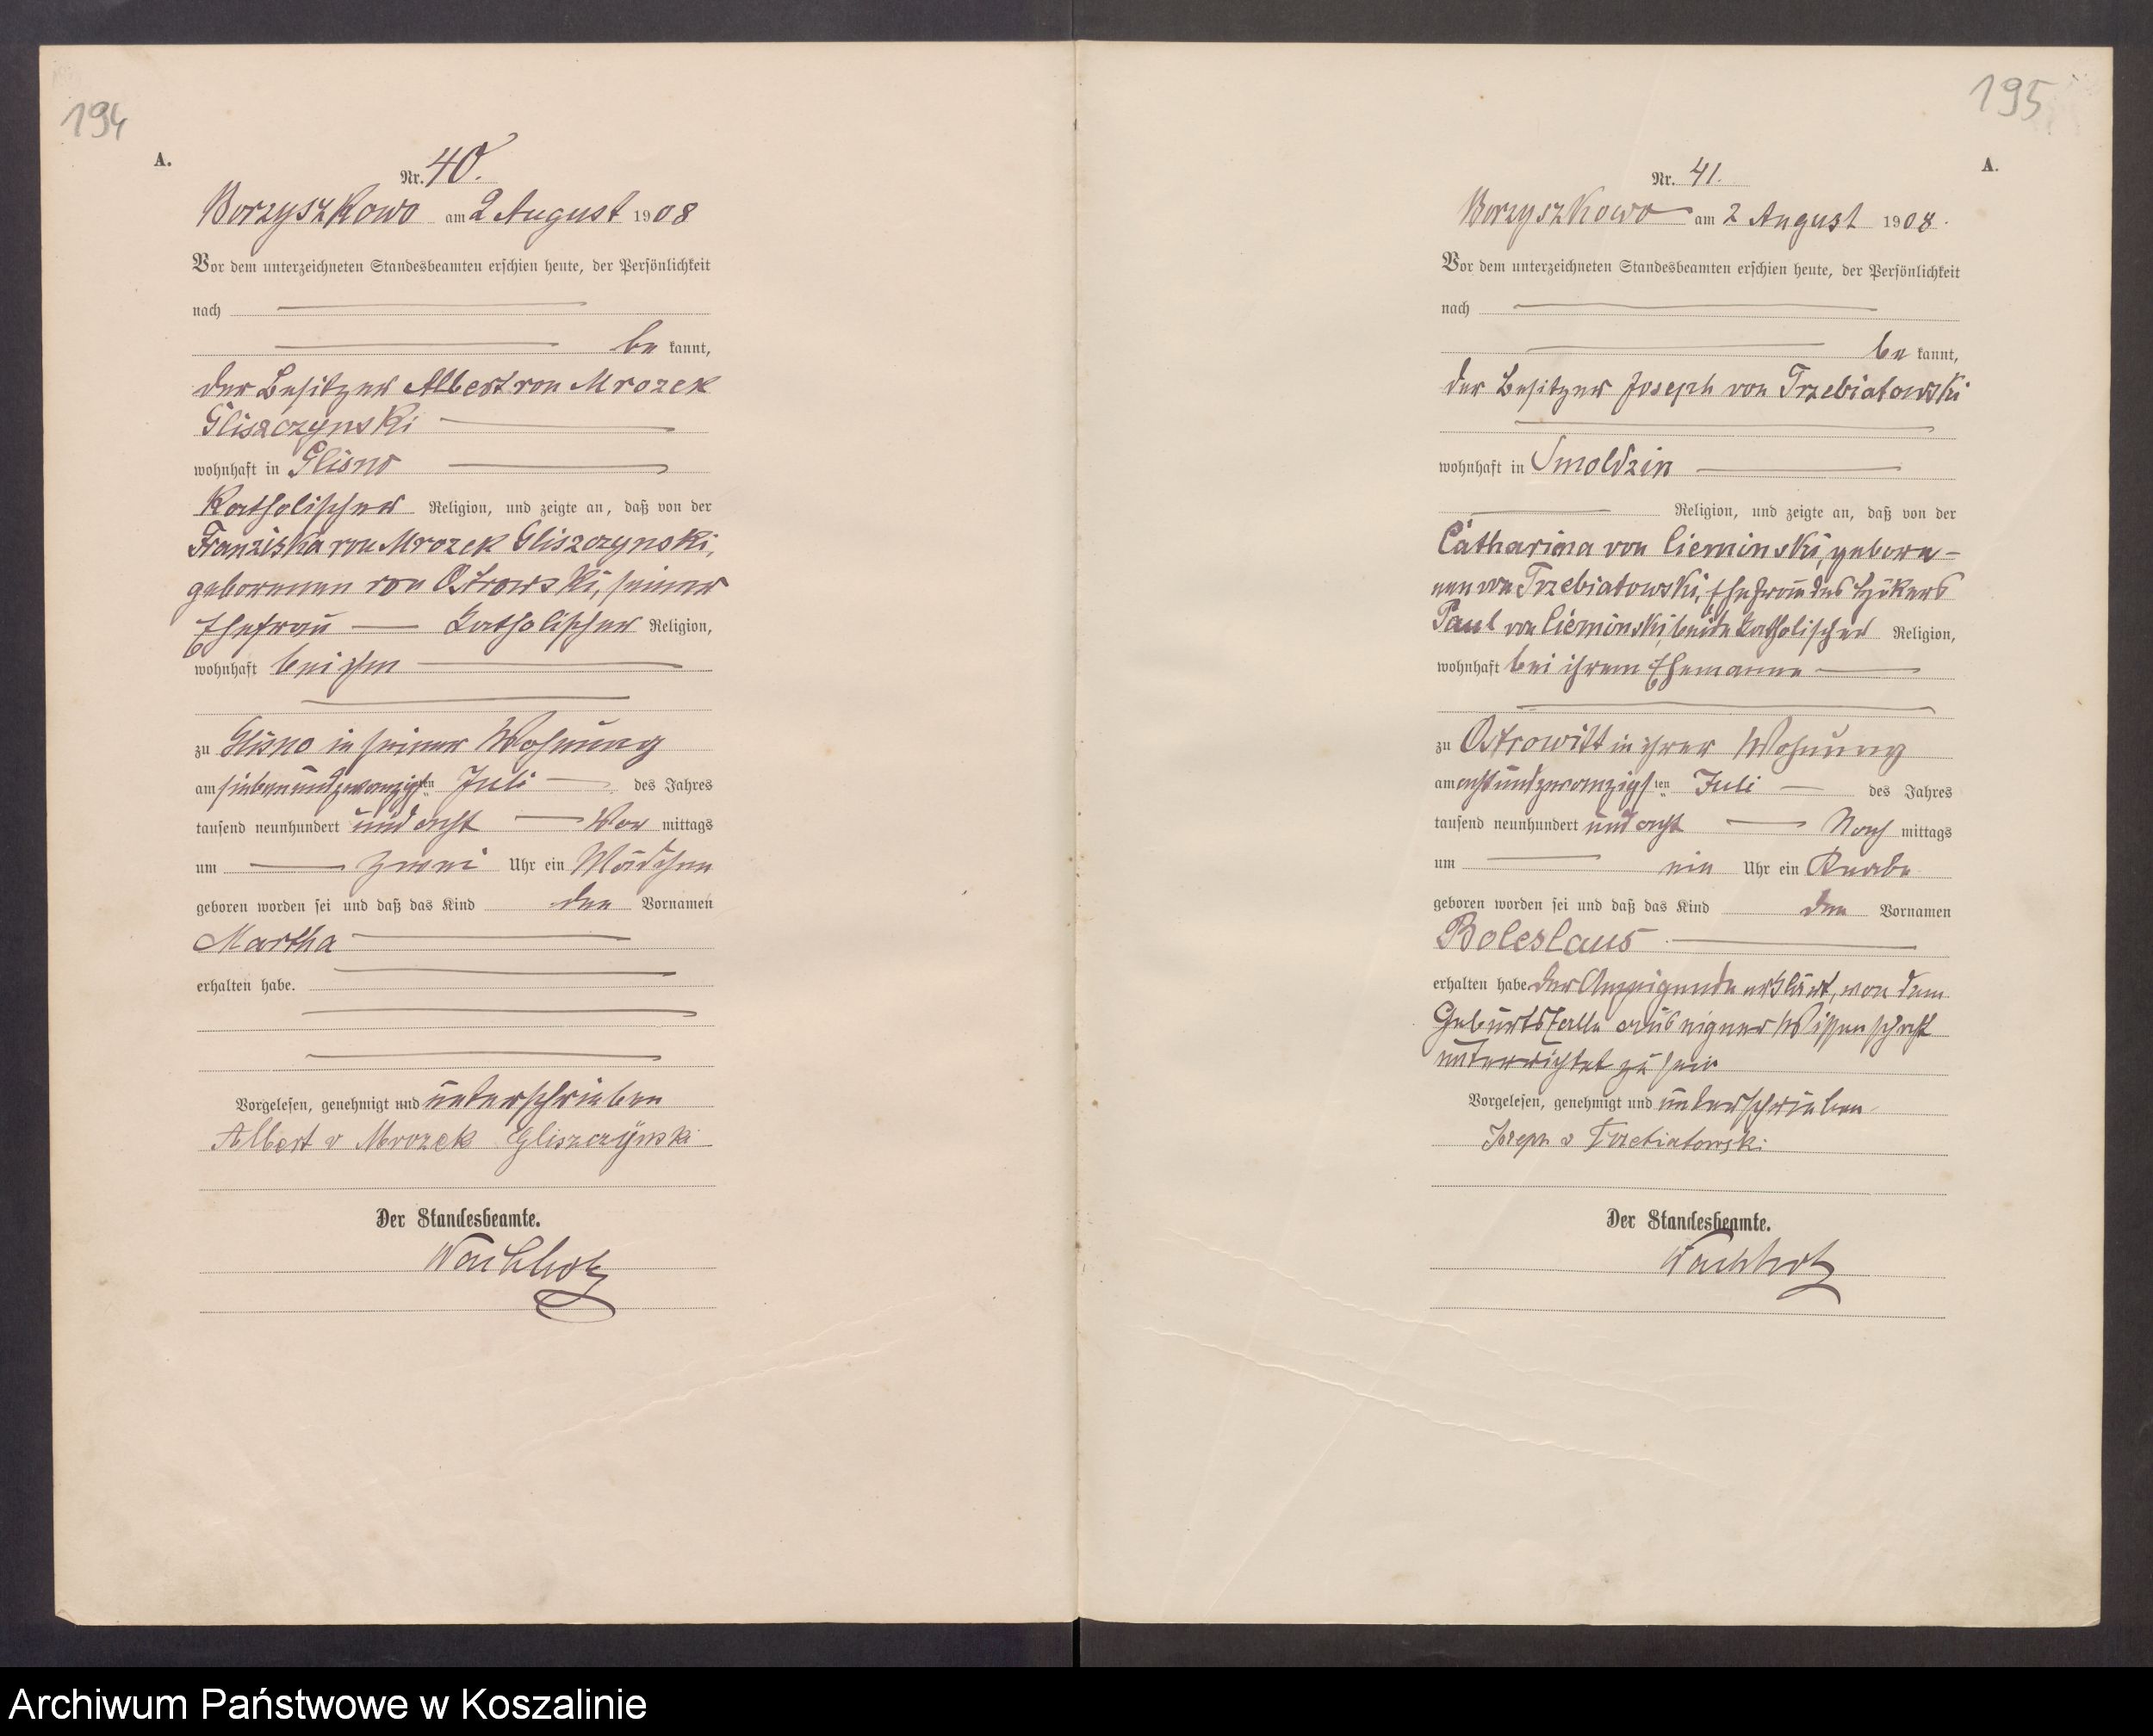 194
A.
Nr. 40.
Borzyszkowo am 2 August 1908
Vor dem unterzeichneten Standesbeamten erschien heute, der Persönlichkeit
nach
be kannt,
der Besitzer Albert von Mrozek
Gliszczynski
wohnhaft in Glisno
Katholischer Religion, und zeigte an, daß von der
Franziska von Mrozek Gliszczynski,
geborenen von Ostrowski, seiner
Ehefrau Katholischer Religion,
wohnhaft bei ihm
zu Glisno in seiner Wohnung
am siebenundzwanzigsten Juli des Jahres
tausend neunhundert und acht Vor mittags
um zwei Uhr ein Mädchen
geboren worden sei und daß das Kind den Vornamen
Martha
erhalten habe.
Vorgelesen, genehmigt und unterschrieben
Albert v Mrozek Gliszczynski
Der Standesbeamte.
Wachholz
195
A.
Nr. 41.
Borzyszkowo am 2 August 1908.
Vor dem unterzeichneten Standesbeamten erschien heute, der Persönlichkeit
nach
be kannt,
der Besitzer Joseph von Trzebiatowski
wohnhaft in Smoldzin
Religion, und zeigte an, daß von der
Catharina von Cieminski, gebore-
nen von Trzebiatowski, Ehefrau des Hökers
Paul von Cieminski, beide katholischer Religion,
wohnhaft bei ihrem Ehemanne
zu Ostrowitt in ihrer Wohnung
am achtundzwanzigsten Juli des Jahres
tausend neunhundert und acht Nach mittags
um ein Uhr ein Knabe
geboren worden sei und daß das Kind den Vornamen
Boleslaus
erhalten habe der Anzeigende erklärt, von dem
Geburtsfalle aus eigner Wissenschaft
unterrichtet zu sein
Vorgelesen, genehmigt und unterschrieben
Joseph v Trzebiatowski
Der Standesbeamte.
Wachholz
Archiwum Państwowe w Koszalinie